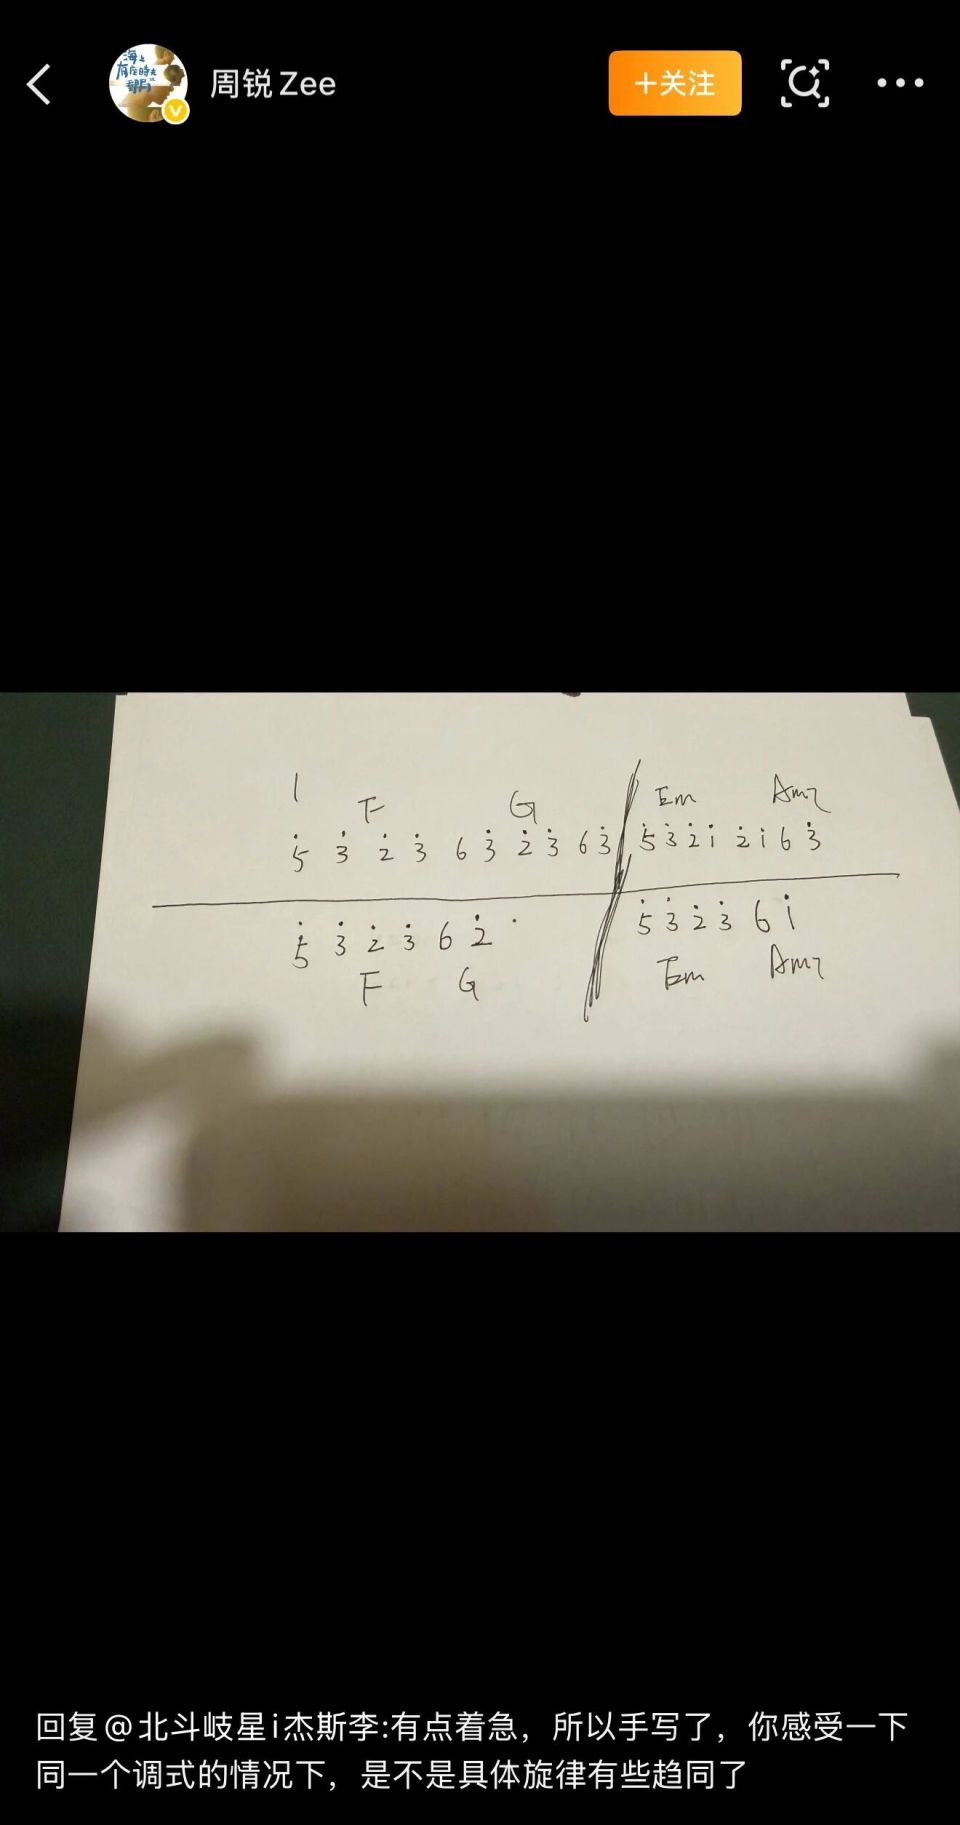 周锐Zee
+关注
1
F G Em Am7
5̇ 3̇ 2̇ 3̇ 6 3̇ 2̇ 3̇ 6 3̇ 5̇ 3̇ 2̇ 1̇ 2̇ 1̇ 6 3̇
5̇ 3̇ 2̇ 3̇ 6 2̇ · 5̇ 3̇ 2̇ 3̇ 6 1̇
F G Em Am7
回复@北斗岐星i杰斯李:有点着急，所以手写了，你感受一下
同一个调式的情况下，是不是具体旋律有些趋同了